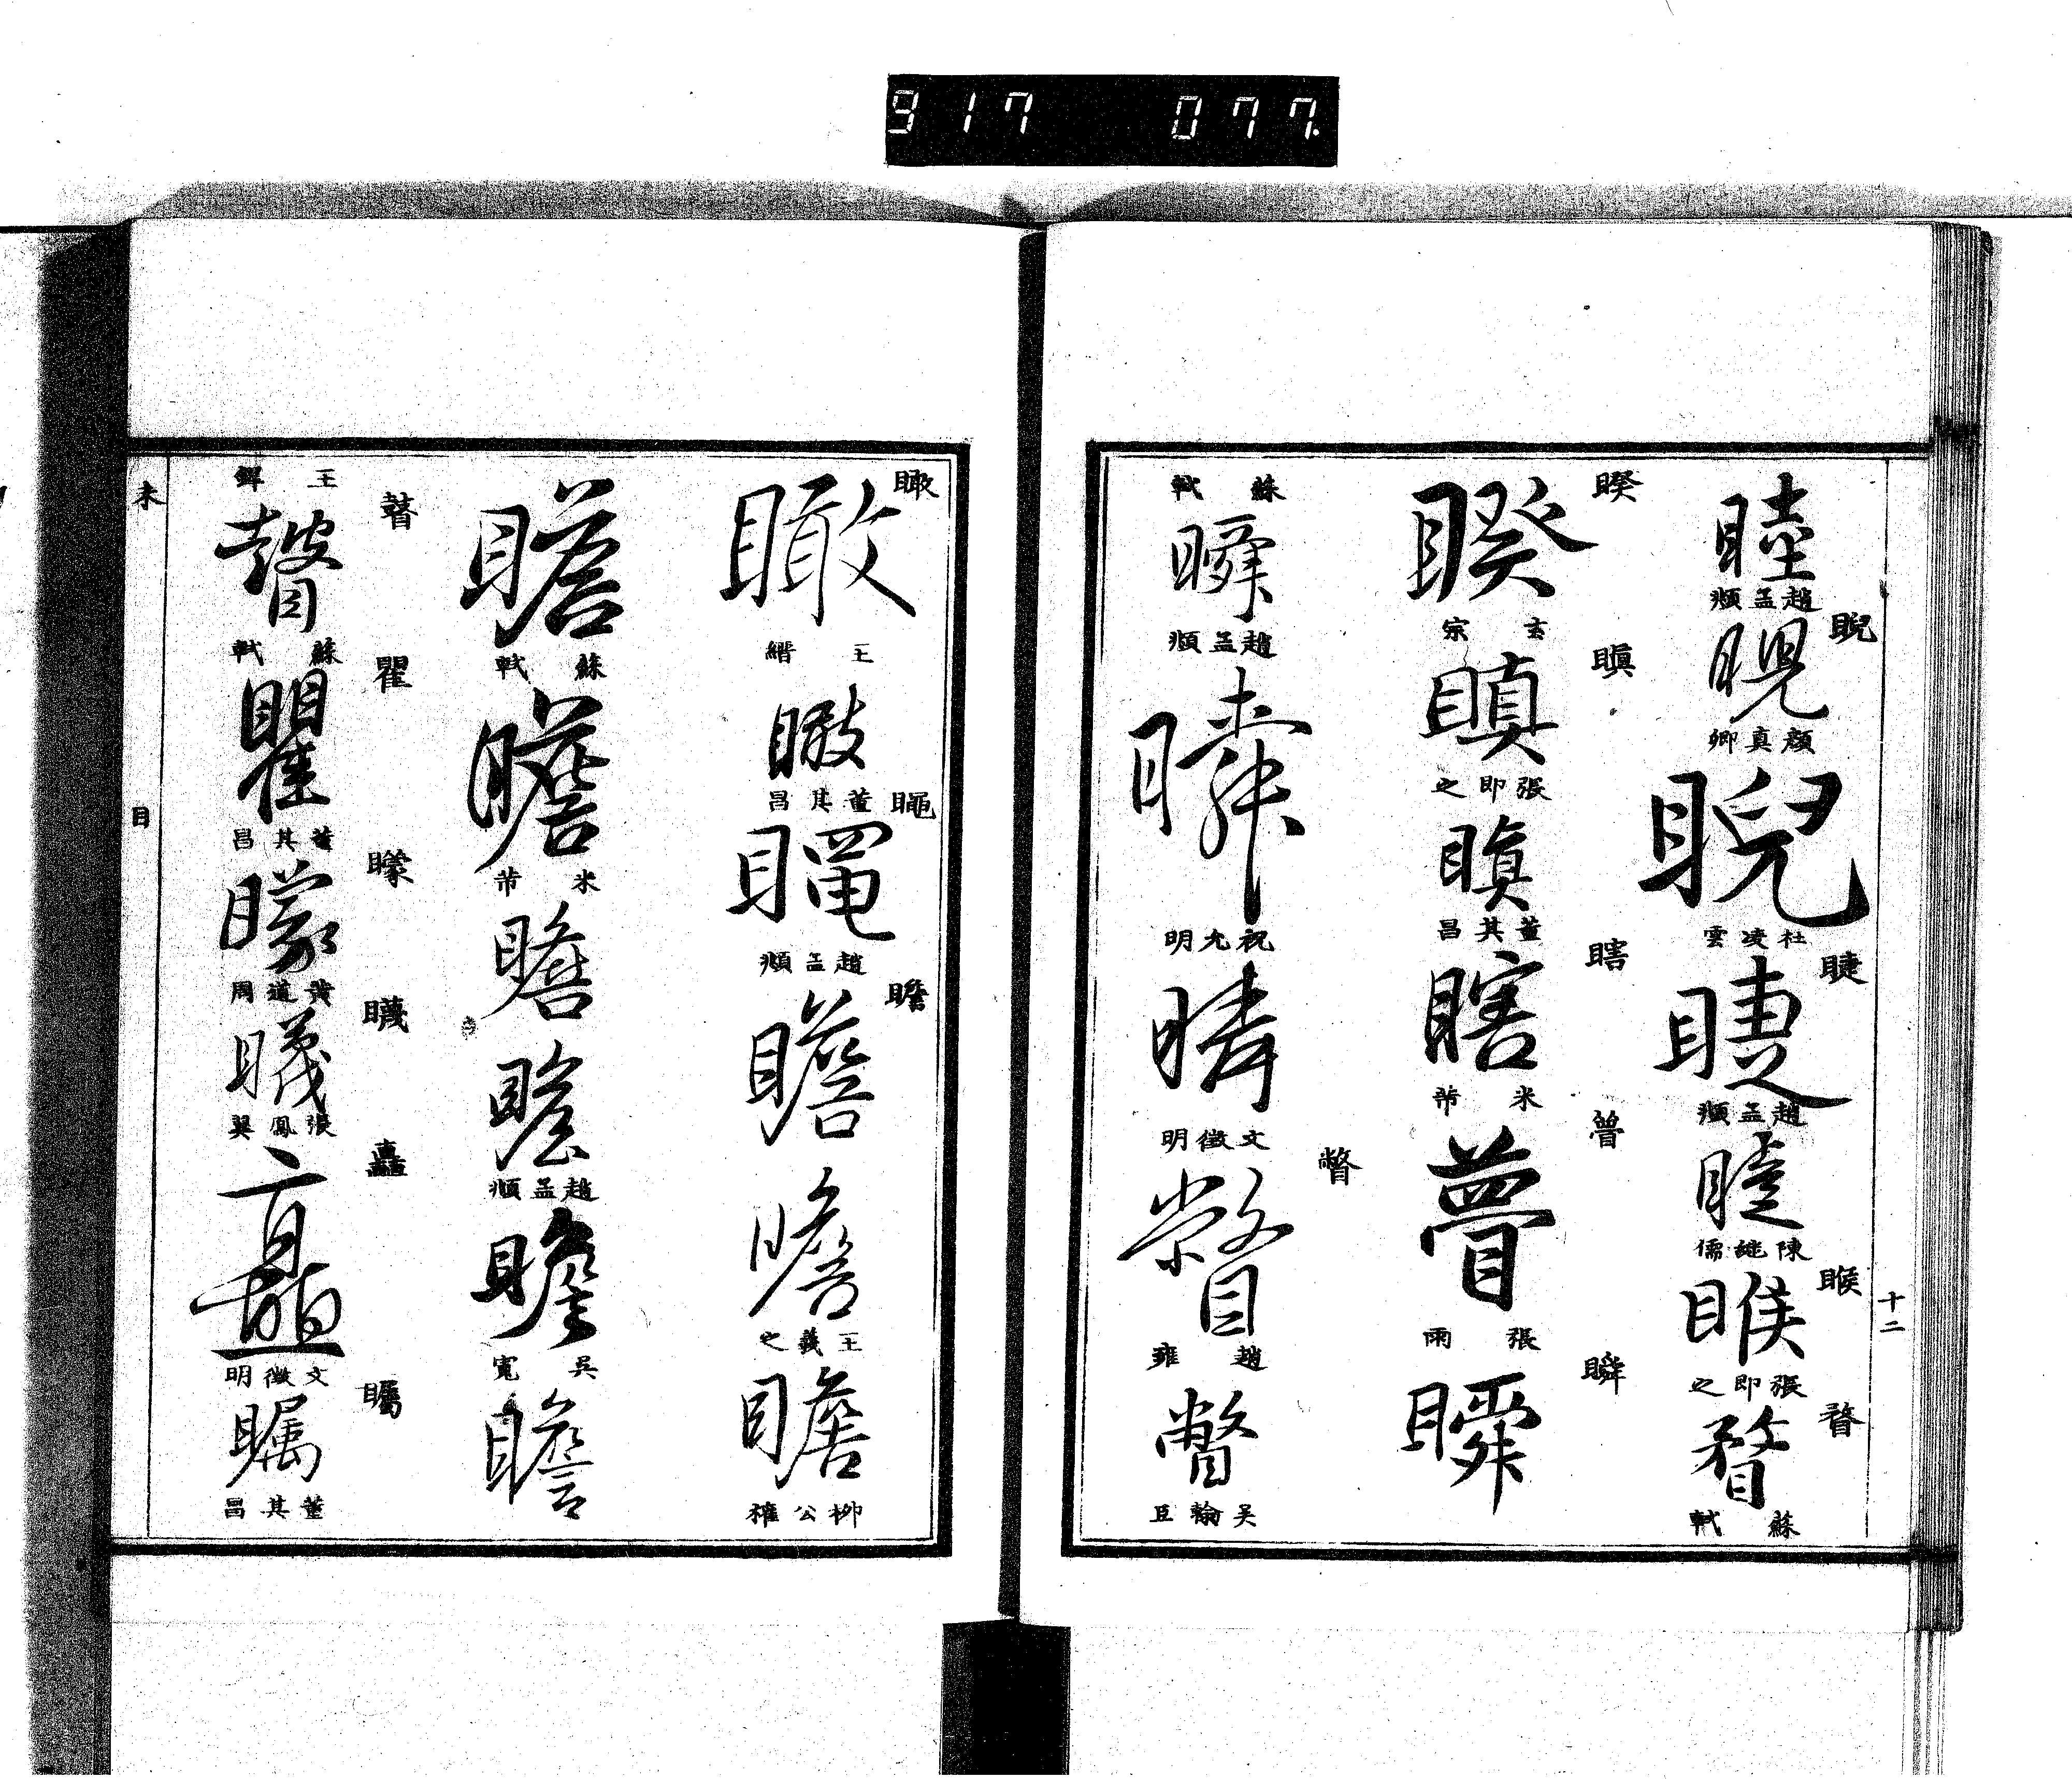 917 077.
十二
睦
趙孟頫
睨
睨
顏真卿
睨
杜凌雲
睫
睫
趙孟頫
睫
陳継儒
睺
睺
張即之
瞀
瞀
蘇軾
睽
睽
玄宗
瞋
瞋
張即之
瞋
董其昌
瞎
瞎
米芾
瞢
瞢
張雨
瞬
瞬
蘇軾
瞬
趙孟頫
瞬
祝允明
瞬
文徵明
瞥
瞥
趙雍
瞥
吴翰臣
瞰
瞰
王縉
瞰
董其昌
趙孟頫
瞻
瞻
瞻
王羲之
瞻
柳公權
瞻
蘇軾
瞻
米芾
瞻
瞻
趙孟頫
瞻
吳寬
瞻
王鐸
瞽
瞽
蘇軾
瞿
瞿
董其昌
矇
矇
黄道周
張鳳翼
矗
矗
文徵明
矚
矚
董其昌
未
目